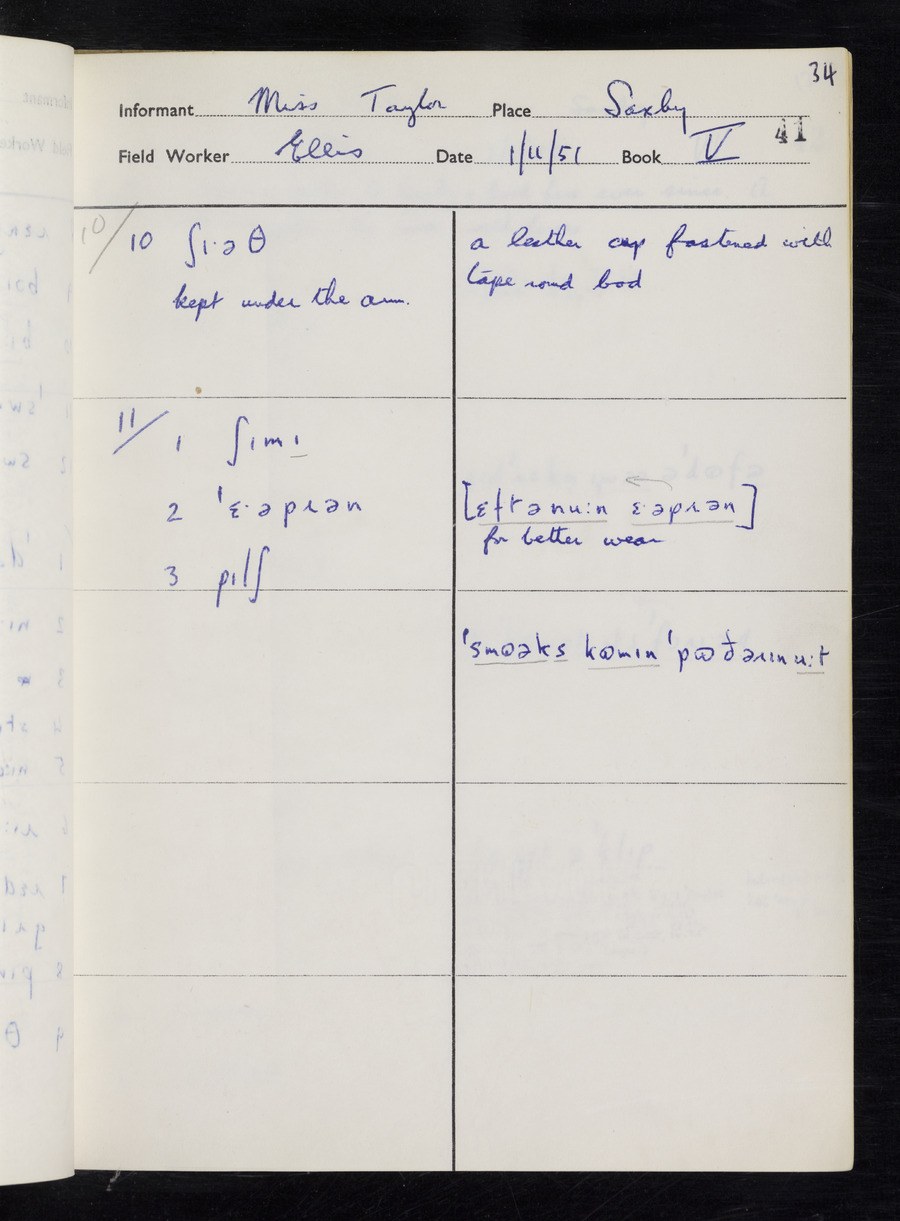 34
Informant Miss Taylor Place Saxby
41
Field Worker Ellis Date 1/11/51 Book V
10/ 10 ʃɪ·əθ
kept under the arm.
a leather cup fastened with
tape round bod
11/ 1 ʃɪmɪ
2 'ɛ·əpɹən
[ɛftənu:n ɛ·əpɹən]
for better wear
3 pɪlʃ
'smɷəks kɷmɪn 'pɷðəɹɪnu:t